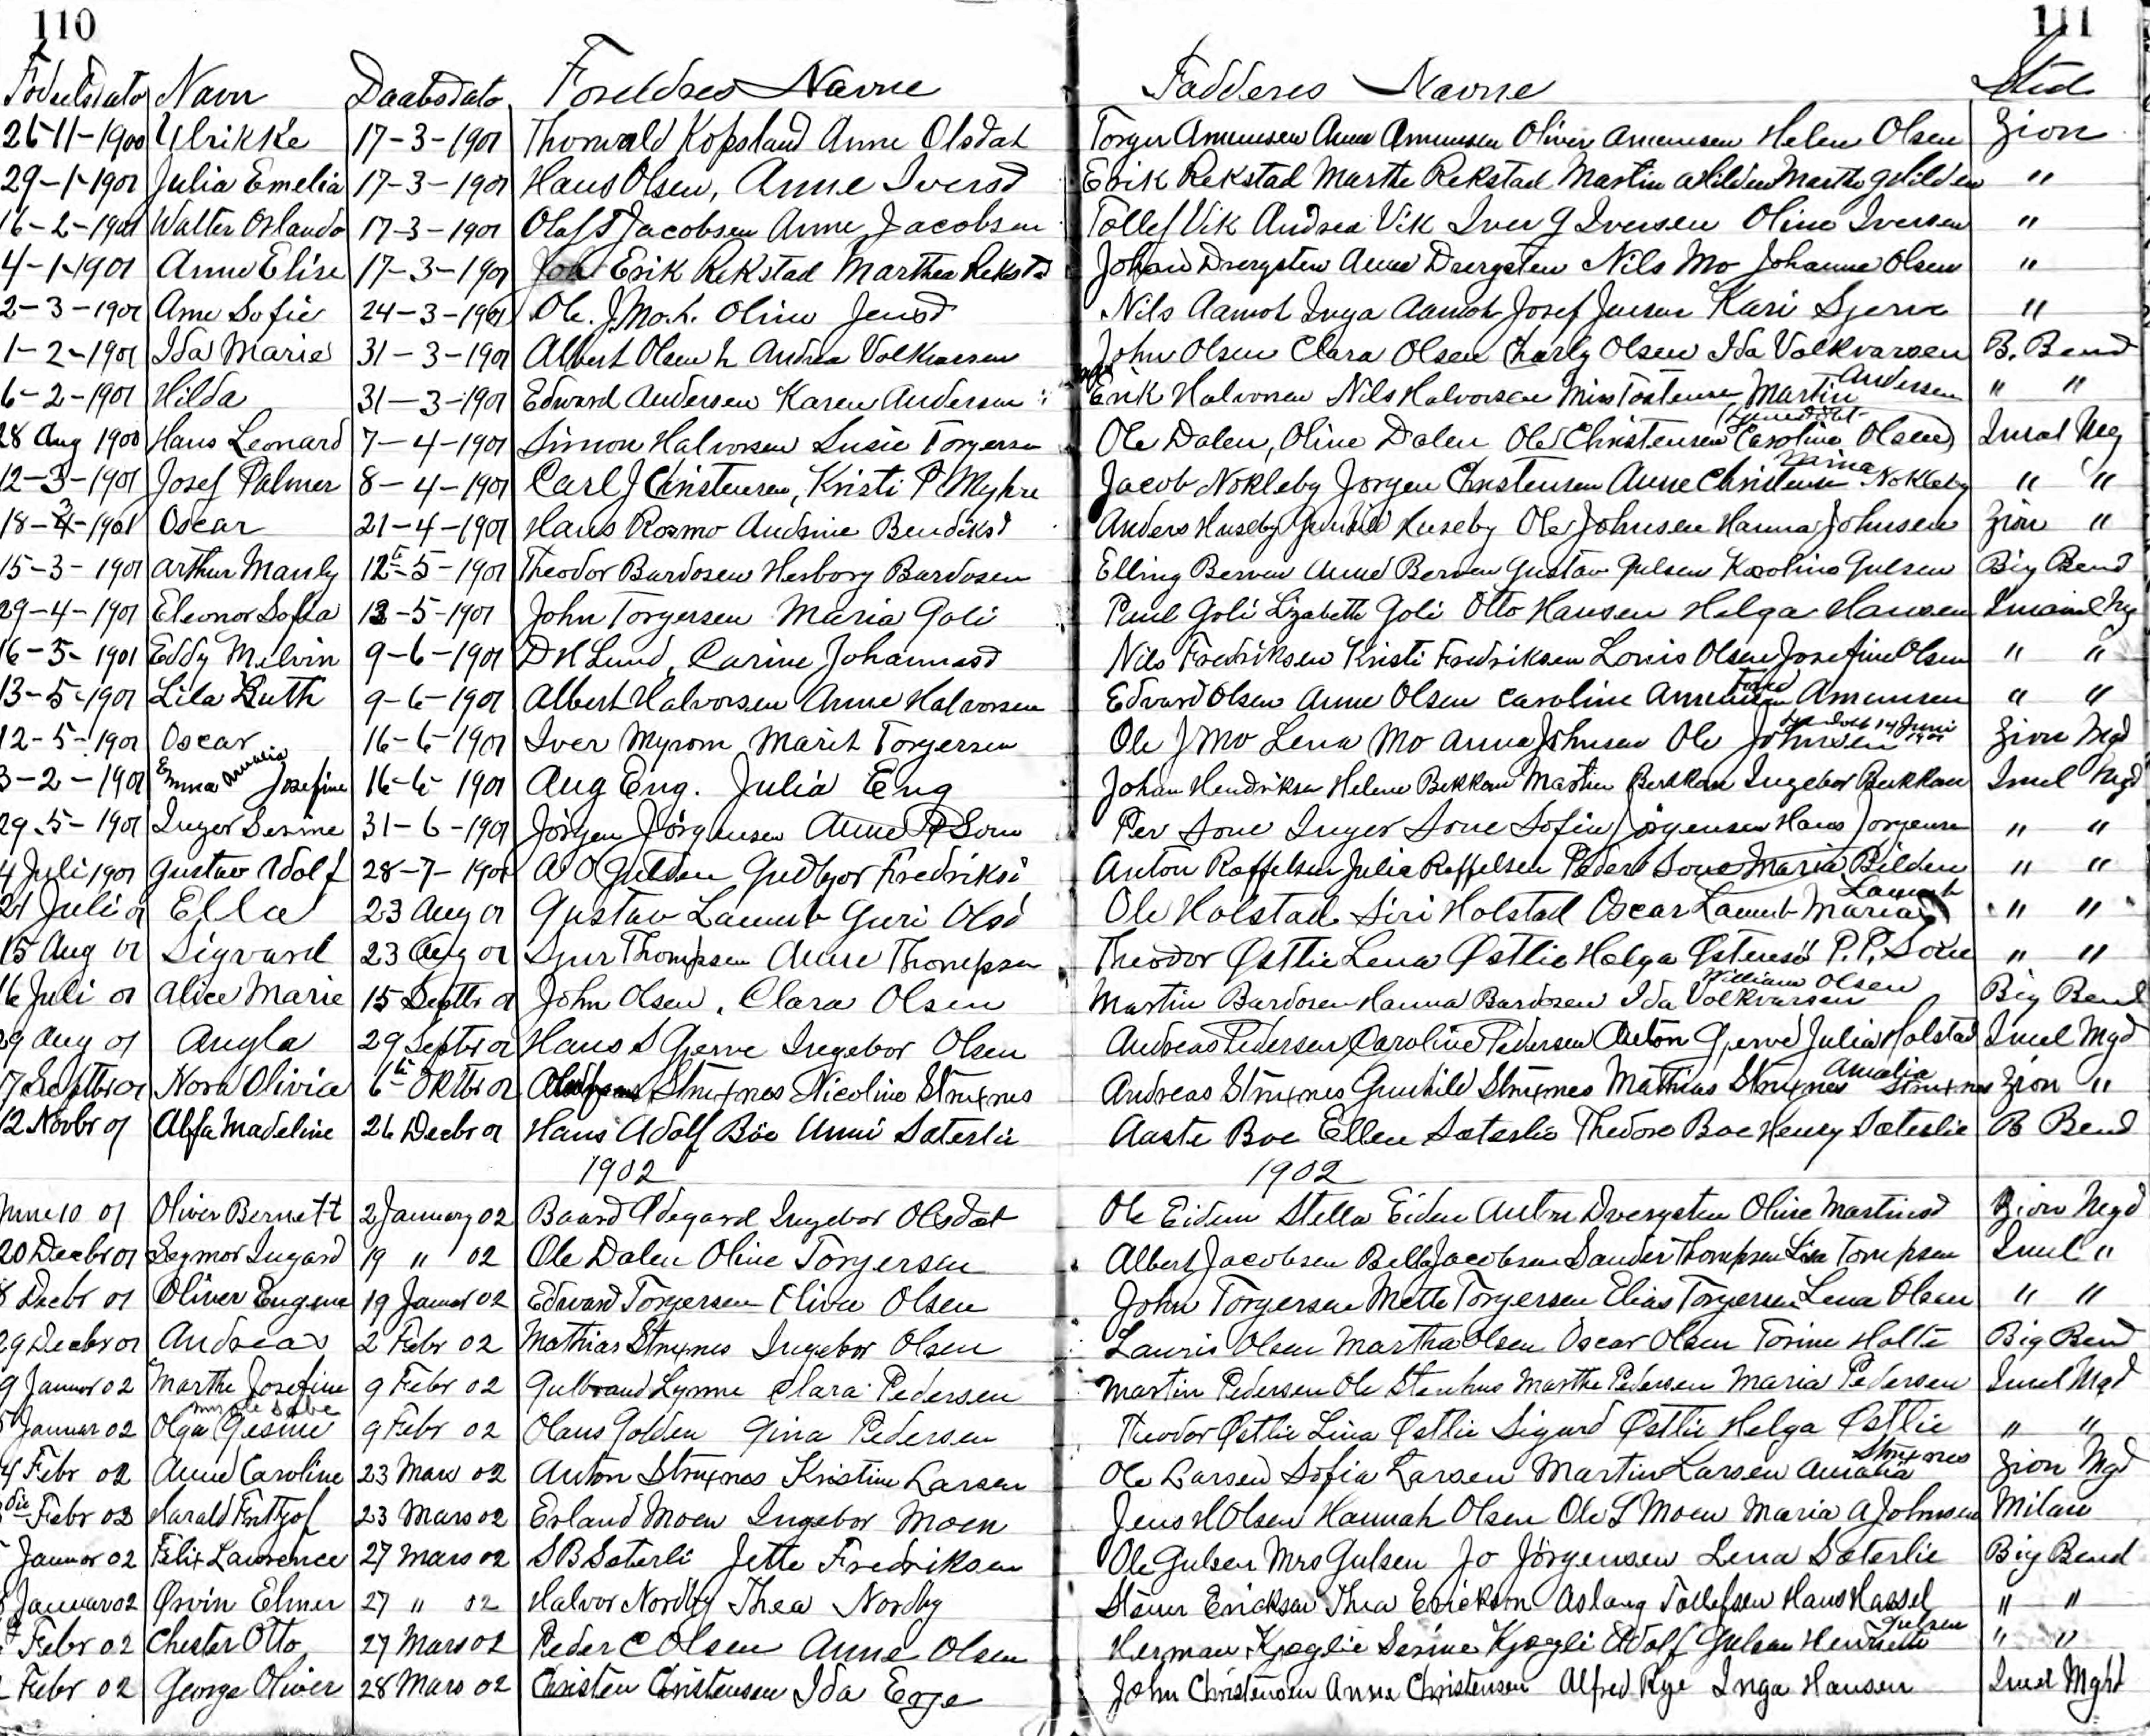 110 111
Fødselsdato Navn Daabsdato Foreldres Navne Fadderes Navne Sted
26-11-1900 Ulrikke 17-3-1901 Thorwald Kopsland Anne Olsdat Torger Amunsen Anne Amunsen Oliver Amunsen Helen Olsen Zion
29-1-1901 Julia Emelia 17-3-1901 Hans Olsen, Anne Iversd Erik Rekstad Marthe Rekstad Martin Marthe " 
16-2-1901 Walter Orlando 17-3-1901 Olaf Jacobsen Anne Jacobsen Tollef Vik Andrea Vik Iver G Iversen Oline Iversen "
4-1-1901 Anne Elise 17-3-1901 Erik Rekstad Marthea Rekstd Johan Drergsten Anne Drergsten Nils Mo Johanne Olsen "
2-3-1901 Ane Sofie 24-3-1901 Ole. J. Mo. Oline Jensd Nils Aamot Inga Aamot Josef Jensen Kari Sjerve "
1-2-1901 Ida Marie 31-3-1901 Albert Olsen Andrea Volkvarsen John Olsen Clara Olsen Charly Olsen Ida Volkvarsen B. Bend
6-2-1901 Hilda 31-3-1901 Edward Andersen Karen Andersen Erik Halvorsen Nils Halvorsen Miss Tostensen Martin Andersen " "
28 Aug 1900 Hans Leonard 7-4-1901 Simon Halvorsen Susie Torgersen Ole Dalen, Oline Dalen Ole Christensen Caroline Olsen
12-3-1901 Josef Palmer 8-4-1901 Carl J Christensen, Kristi P Myhre Jacob Nokleby Jorgen Christensen Anne Christensen Mina Nokleby " "
18-3-1901 Oscar 21-4-1901 Hans Rosmo Andrine Bendiksd Anders Huseby Gunhild Huseby Ole Johnsen Hanna Johnsen Zion "
15-3-1901 Arthur Manly 12-5-1901 Theodor Bardosen Herborg Bardosen Elling Berven Anne Berven Gustav Gulsen Karoline Gulsen Big Bend
29-4-1901 Eleonor Sofia 12-5-1901 John Torgersen Maria Goli Paul Goli Lizabeth Goli Otto Hansen Helga Hansen
16-5-1901 Eddy Melvin 9-6-1901 D H Lund, Carine Johannesd Nils Fredriksen Kristi Fredriksen Louis Olsen Josefine Olsen " "
13-5-1901 Lila Ruth 9-6-1901 Albert Halvorsen Anne Halvorsen Edvard Olsen Anne Olsen Caroline Amunsen Amunsen " "
12-5-1901 Oscar 16-6-1901 Iver Myrom Marit Torgersen Ole J Mo Lena Mo Anna Johnsen Ole Johnsen 14 Juni Zion Mgd
3-2-1901 Emma Amalia Josefine 16-6-1901 Aug Eng. Julia Eng Johan Hendriksen Helene Bekken Martin Bekken Ingebor Bekken Imel Mgd
29-5-1901 Inger Serine 31-6-1901 Jörgen Jörgensen Anne P Sone Per Sone Inger Sone Sofie Jörgensen Hans Jorgensen " "
4 Juli 1901 Gustav Adolf 28-7-1901 A O Gulden Gudbjor Fredriksd Anton Roffelsen Julia Roffelsen Peder Sone Maria Bilden " "
21 Juli 01 Ella 23 Aug 01 Gustav Lamub Guri Olsd Ole Holstad Siri Holstad Oscar Lamub Maria " "
15 Aug 01 Sigvard 23 Aug 01 Sjur Thompsen Anne Thompsen Theodor Østlie Lena Østlie Helga Østensd P. P. Sone " "
16 Juli 01 Alice Marie 15 Septbr 01 John Olsen. Clara Olsen Martin Bardosen Hanna Bardosen Ida Volkvarsen William Olsen Big Bend
29 Aug 01 Angla 29 Septbr 01 Hans S Gjerve Ingebor Olsen Andreas Pedersen Caroline Pedersen Anton Gjerve Julia Holstad Imel Mgd
7 Septbr 01 Nora Olivia 6te Oktbr 01 Struxnes Nicoline Struxnes Andreas Struxnes Gunhild Struxnes Mathias Struxnes Amalia Struxnes Zion "
12 Novbr 01 Alfa Madeline 26 Decbr 01 Hans Adolf Böe Anni Sæterlie Aaste Boe Ellen Sæterlie Theodore Boe Henry Sæterlie B Bend
1902 1902
June 10 01 Oliver Bernett 2 January 02 Baard Ødegard Ingebor Olsdat Ole Eidem Stella Eiden Anton Dvergsten Oline Martinsd Zion Mgd
20 Decbr 01 Seymor Ingard 19 " 02 Ole Dalen Oline Torgersen Albert Jacobsen Bella Jacobsen Sander Thompsen Lisa Tompsen Imel "
8 Decbr 01 Oliver Eugene 19 Januar 02 Edvard Torgersen Olive Olsen John Torgersen Mette Torgersen Elias Torgersen Lena Olsen " "
29 Decbr 01 Andreas 2 Febr 02 Mathias Struxnes Ingebor Olsen Lauris Olsen Martha Olsen Oscar Olsen Torine Holte Big Bend
9 Januar 02 Marthe Josefine 9 Febr 02 Gulbrand Lynne Clara Pedersen Martin Pedersen Ole Stenhus Marthe Pedersen Maria Pedersen Imel Mgd
Januar 02 Olga Gesine 9 Febr 02 Olaus Golden Gina Pedersen Theodor Østlie Lina Østlie Sigurd Østlie Helga Østlie " "
4 Febr 02 Anne Caroline 23 Mars 02 Anton Struxnes Kristine Larsen Ole Larsen Sofia Larsen Martin Larsen Amalia Struxnes Zion Mgd
Febr 02 Harald Fritjof 23 Mars 02 Erland Moen Ingebor Moen Jens H Olsen Hannah Olsen Ole S Moen Maria A Johnsen Milan
Januar 02 Felix Lawrence 27 Mars 02 S B Sæterli Jette Fredriksen Ole Gulsen Mrs Gulsen Jo Jörgensen Lena Sæterlie Big Bend
Januar 02 Ørvin Elmer 27 " 02 Halvor Nordby Thea Nordby Steiner Erickson Thea Erickson Aslaug Tollefsen Hans Hassel " "
Febr 02 Chester Otto 27 Mars 02 Peder C Olsen Anne Olsen Herman Kjøglie Serine Kjøgli Adolf Gulsen Henriette Gulsen " "
Febr 02 George Oliver 28 Mars 02 Christen Christensen Ida Egge John Christensen Anna Christensen Alfred Rye Inga Hansen Imel Mght